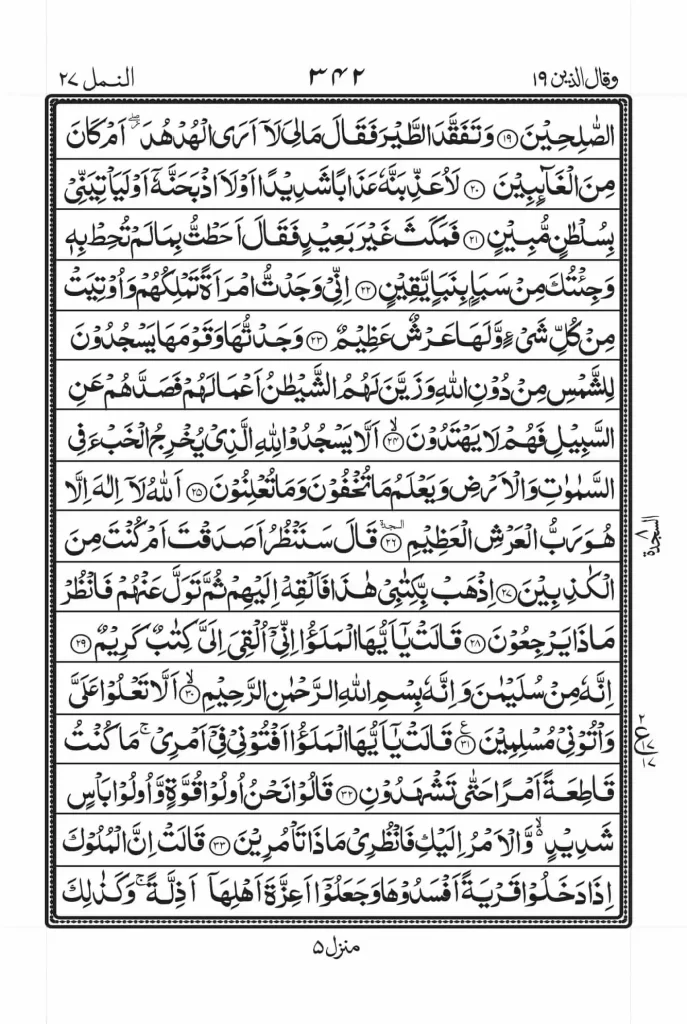 وقال الذین ۱۹
۳۴۲
النمل ۲۷
الصّٰلِحِیْنَ ﴿۱۹﴾ وَتَفَقَّدَ الطَّیْرَ فَقَالَ مَالِیَ لَاۤ اَرَی الْهُدْهُدَ ۖ اَمْ کَانَ
مِنَ الْغَآىِٕبِیْنَ ﴿۲۰﴾ لَاُعَذِّبَنَّهٗ عَذَابًا شَدِیْدًا اَوْلَاۡاَذْبَحَنَّهٗۤ اَوْ لَیَاْتِیَنِّیْ
بِسُلْطٰنٍ مُّبِیْنٍ ﴿۲۱﴾ فَمَکَثَ غَیْرَ بَعِیْدٍ فَقَالَ اَحَطْتُّ بِمَا لَمْ تُحِطْ بِهٖ
وَجِئْتُكَ مِنْ سَبَاٍۭ بِنَبَاٍ یَّقِیْنٍ ﴿۲۲﴾ اِنِّیْ وَجَدْتُّ امْرَاَةً تَمْلِکُهُمْ وَاُوْتِیَتْ
مِنْ کُلِّ شَیْءٍ وَّلَهَا عَرْشٌ عَظِیْمٌ ﴿۲۳﴾ وَجَدْتُّهَا وَقَوْمَهَا یَسْجُدُوْنَ
لِلشَّمْسِ مِنْ دُوْنِ اللّٰهِ وَزَیَّنَ لَهُمُ الشَّیْطٰنُ اَعْمَالَهُمْ فَصَدَّهُمْ عَنِ
السَّبِیْلِ فَهُمْ لَا یَهْتَدُوْنَ ﴿۲۴﴾ۙ اَلَّا یَسْجُدُوْا لِلّٰهِ الَّذِیْ یُخْرِجُ الْخَبْءَ فِی
السَّمٰوٰتِ وَالْاَرْضِ وَیَعْلَمُ مَا تُخْفُوْنَ وَمَا تُعْلِنُوْنَ ﴿۲۵﴾ اَللّٰهُ لَاۤ اِلٰهَ اِلَّا
هُوَ رَبُّ الْعَرْشِ الْعَظِیْمِ ﴿۲۶﴾ السجدة قَالَ سَنَنْظُرُ اَصَدَقْتَ اَمْ کُنْتَ مِنَ
السجدة ۸
الْکٰذِبِیْنَ ﴿۲۷﴾ اِذْهَبْ بِّکِتٰبِیْ هٰذَا فَاَلْقِهْ اِلَیْهِمْ ثُمَّ تَوَلَّ عَنْهُمْ فَانْظُرْ
مَاذَا یَرْجِعُوْنَ ﴿۲۸﴾ قَالَتْ یٰۤاَیُّهَا الْمَلَؤُا اِنِّیْۤ اُلْقِیَ اِلَیَّ کِتٰبٌ کَرِیْمٌ ﴿۲۹﴾
اِنَّهٗ مِنْ سُلَیْمٰنَ وَاِنَّهٗ بِسْمِ اللّٰهِ الرَّحْمٰنِ الرَّحِیْمِ ﴿۳۰﴾ۙ اَلَّا تَعْلُوْا عَلَیَّ
وَاْتُوْنِیْ مُسْلِمِیْنَ ﴿۳۱﴾ع قَالَتْ یٰۤاَیُّهَا الْمَلَؤُا اَفْتُوْنِیْ فِیْۤ اَمْرِیْ ۚ مَا کُنْتُ
۲ ع ۱۷ ۱۷
قَاطِعَةً اَمْرًا حَتّٰی تَشْهَدُوْنِ ﴿۳۲﴾ قَالُوْا نَحْنُ اُولُوْا قُوَّةٍ وَّاُولُوْا بَاْسٍ
شَدِیْدٍ ۙ۬ وَّالْاَمْرُ اِلَیْكِ فَانْظُرِیْ مَاذَا تَاْمُرِیْنَ ﴿۳۳﴾ قَالَتْ اِنَّ الْمُلُوْكَ
اِذَا دَخَلُوْا قَرْیَةً اَفْسَدُوْهَا وَجَعَلُوْۤا اَعِزَّةَ اَهْلِهَاۤ اَذِلَّةً ۚ وَکَذٰلِكَ
منزل ۵